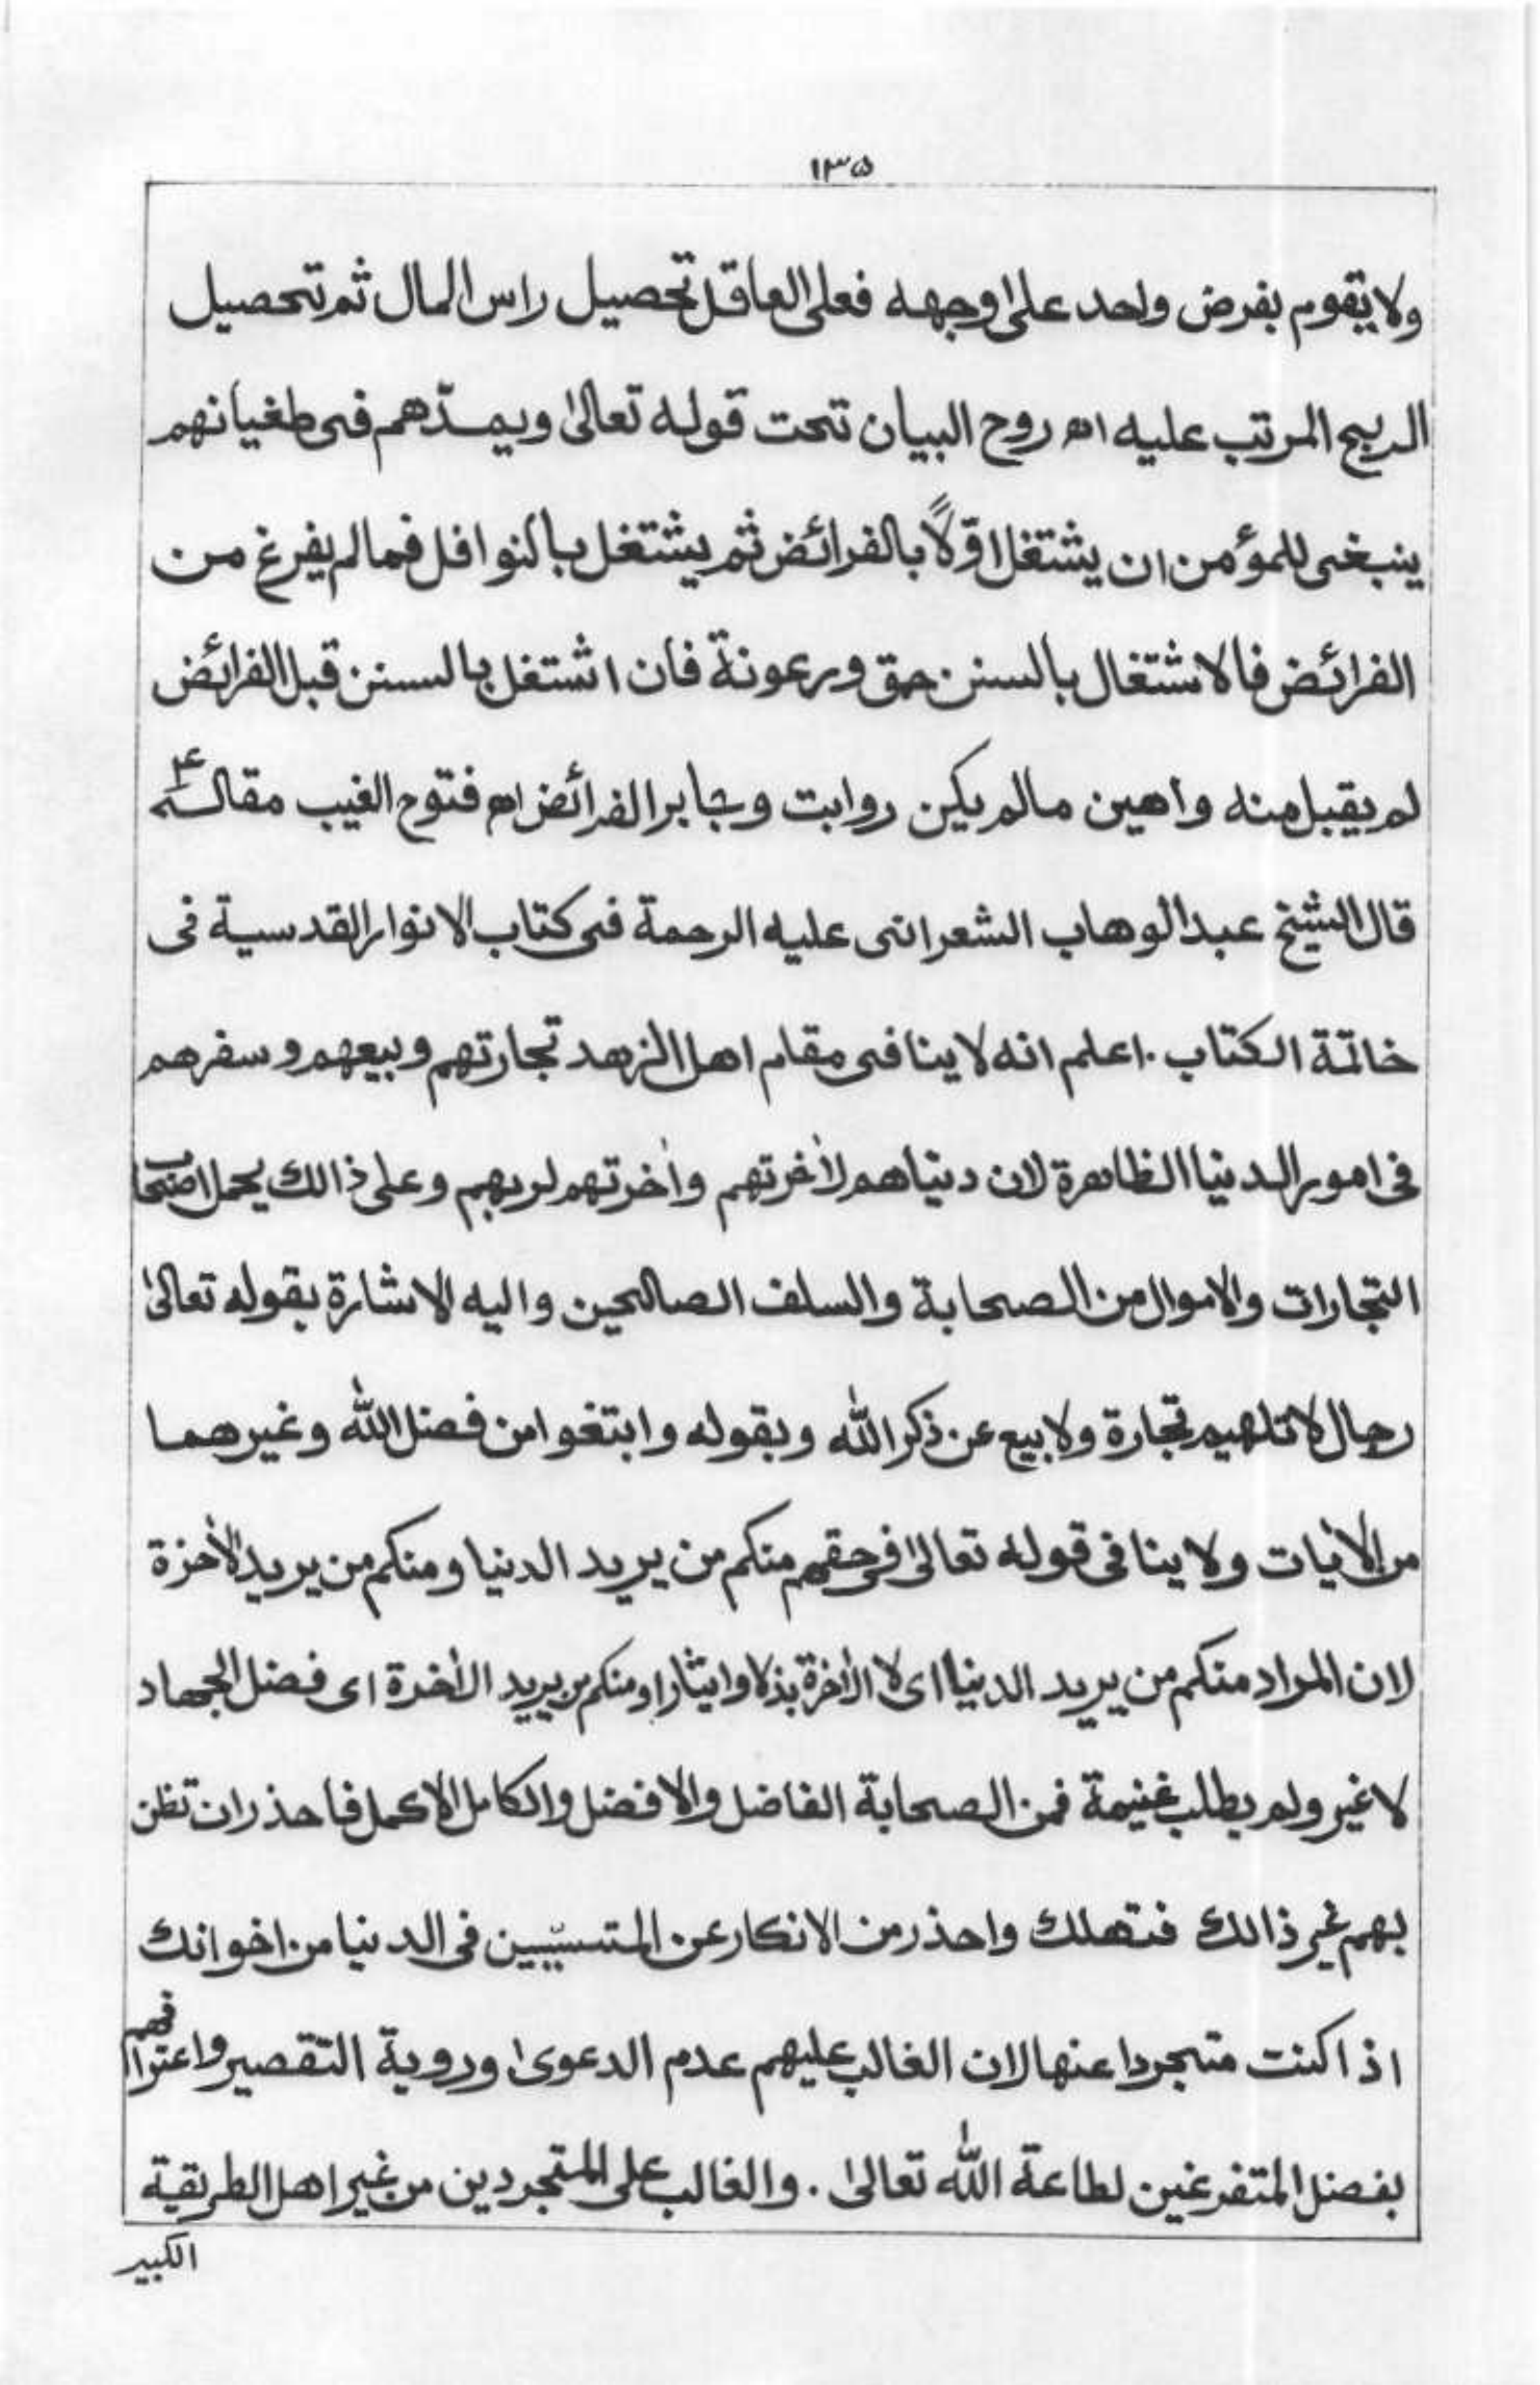 ۱۳۵
ولا يقوم بفرض واحد على اوجهه فعلى العاقل تحصيل راس المال ثم تحصيل
الربح المرتب عليه اھ روح البيان تحت قوله تعالىٰ ويمدّهم فى طغيانهم
ينبغى للمؤمن ان يشتغل اوّلاً بالفرائض ثم يشتغل بالنوافل فما لم يفرغ من
الفرائض فالاشتغال بالسنن حمق ورعونة فان اشتغل بالسنن قبل الفرائض
لم يقبل منه واهين مالم يكن روابت وجابر الفرائض اھ فتوح الغيب مقاله
قال الشيخ عبد الوهاب الشعرانى عليه الرحمة فى كتاب الانوار القدسية فى
خاتمة الكتاب . اعلم انه لا ينافى مقام اهل الزهد تجارتهم وبيعهم وسفرهم
فى امور الدنيا الظاهرة لان دنياهم لاٰخرتهم واٰخرتهم لربهم وعلى ذالك يحمل اصحاب
التجارات والاموال من الصحابة والسلف الصالحين واليه الاشارة بقوله تعالىٰ
رجال لا تلهيهم تجارة ولا بيع عن ذكر الله وبقوله وابتغوا من فضل الله وغيرهما
من الاٰيات ولا ينافى قوله تعالىٰ فى حقهم منكم من يريد الدنيا ومنكم من يريد الاٰخرة
لان المراد منكم من يريد الدنيا اى لا الاٰخرة بذلا وايثارا ومنكم من يريد الاٰخرة اى فضل الجهاد
لا غير ولم يطلب غنيمة فمن الصحابة الفاضل والافضل والكامل الاكمل فاحذر ان تظن
بهم غير ذالك فتهلك واحذر من الانكار عن المتسبّبين فى الدنيا من اخوانك
اذا كنت متجردا عنها لان الغالب عليهم عدم الدعوىٰ وروية التقصير واعترافهم
بفضل المتفرغين لطاعة الله تعالىٰ . والغالب على المتجردين من غير اهل الطريقية
الكبير